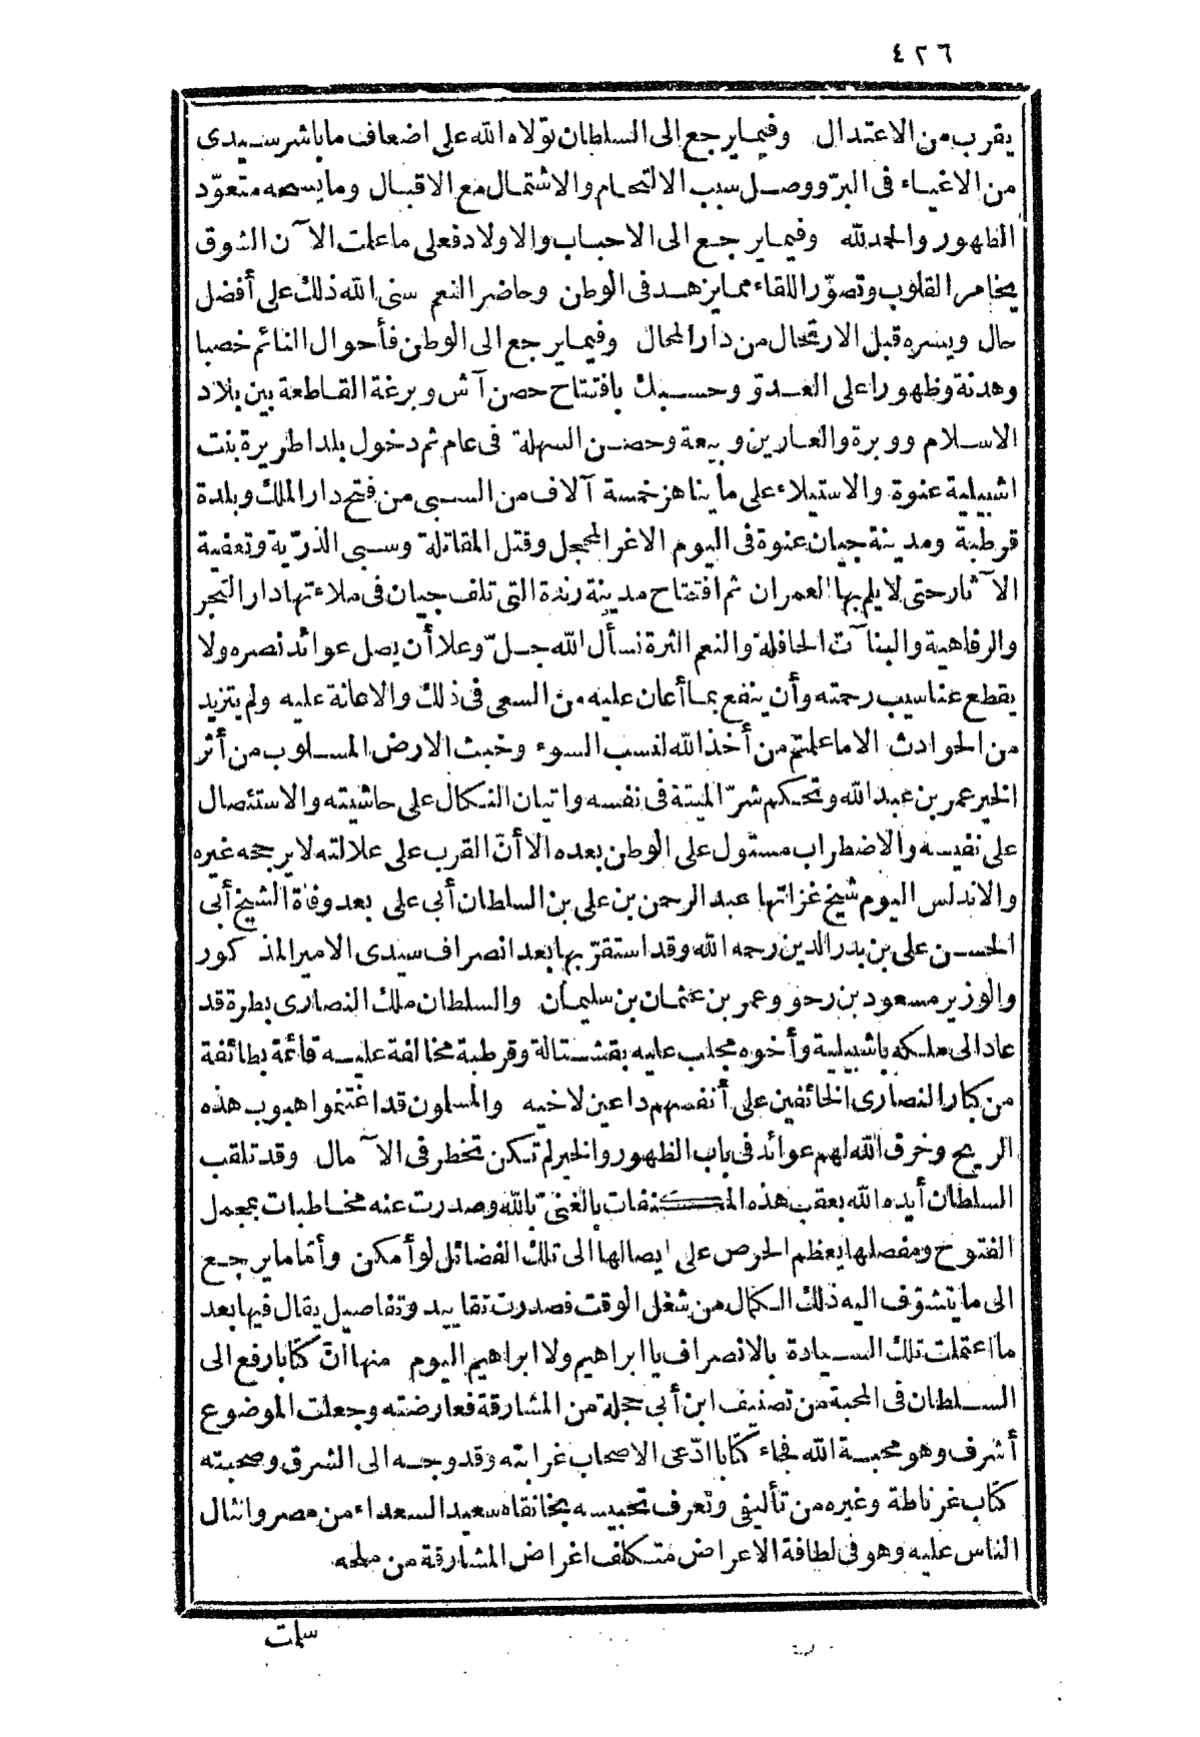 ٤٢٦
يقرب من الاعتدال وفيما يرجع الى السلطان تولاه الله على اضعاف ما باشر سيدى
من الاغياء فى البرّ ووصل سبب الالتحام والاشتمال مع الاقبال وما يسعه متعوّد
الظهور والحمد لله وفيما يرجع الى الاحباب والاولاد فعلى ما علمت الآن الشوق
يخامر القلوب وتصوّر اللقاء مما يزهد فى الوطن وحاضر النعم سنى الله ذلك على أفضل
حال ويسره قبل الارتحال من دار المحال وفيما يرجع الى الوطن فأحوال النائم خصبا
وهدنة وظهورا على العدوّ وحسبك بافتتاح حصن آش وبرغة القاطعة بين بلاد
الاسلام ووبرة والعارين وبيعة وحصن السهلة فى عام ثم دخول بلد اطريرة بنت
اشبيلية عنوة والاستيلاء على ما يناهز خمسة آلاف من السبى من فتح دار الملك وبلدة
قرطبة ومدينة جيان عنوة فى اليوم الاغر المحجل وقتل المقاتلة وسبى الذرّية وتعفية
الآثار حتى لا يلم بها العمران ثم افتتاح مدينة رندة التى تلف جيان فى ملاءتها دار التجر
والرفاهية والبنآت الحافلة والنعم الثرة نسأل الله جلّ وعلا أن يصل عوائد نصره ولا
يقطع عنا سيب رحمته وأن ينفع بما أعان عليه من السعى فى ذلك والاعانة عليه ولم يتزيد
من الحوادث الا ما علمتم من أخذ الله لنسب السوء وخبث الارض المسلوب من أثر
الخير عمر بن عبد الله وتحكم شرّ الميتة فى نفسه واتيان النكال على حاشيته والاستئصال
على نفيسه والاضطراب مستول على الوطن بعده الا أنّ القرب على علالته لا يرجحه غيره
والاندلس اليوم شيخ غزاتها عبد الرحمن بن على بن السلطان أبى على بعد وفاة الشيخ أبى
الحسن على بن بدر الدين رحمه الله وقد استقرّ بها بعد انصراف سيدى الامير المذكور
والوزير مسعود بن رحو وعمر بن عثمان بن سليمان والسلطان ملك النصارى بطرة قد
عاد الى ملكه باشبيلية وأخوه مجلب عليه بقشتالة وقرطبة مخالفة عليه قائمة بطائفة
من كبار النصارى الخائفين على أنفسهم داعين لاخيه والمسلون قد اغتنموا هبوب هذه
الريح وخرق الله لهم عوائد فى باب الظهور والخير لم تكن تخطر فى الآمال وقد تلقب
السلطان أيده الله بعقب هذه المكنفات بالغنىّ بالله وصدرت عنه مخاطبات بمجمل
الفتوح ومفصلها يعظم الحرص على ايصالها الى تلك الفضائل لو أمكن وأمّا ما يرجع
الى ما يتشوّف اليه ذلك الكمال من شغل الوقت فصدرت تقاييد وتفاصيل يقال فيها بعد
ما اعتملت تلك السيادة بالانصراف يا ابراهيم ولا ابراهيم اليوم منها انّ كتابا رفع الى
السلطان فى المحبة من تصنيف ابن أبى حجلة من المشارقة فعارضته وجعلت الموضوع
أشرف وهو محبة الله فجاء كتابا ادّعى الاصحاب غرابته وقد وجه الى الشرق وصحبته
كتاب غرناطة وغيره من تأليفى وتعرف تحبيسه بخانقاه سعيد السعداء من مصر وانثال
الناس عليه وهو فى لطافة الاعراض متكلف اغراض المشارقة من ملحه
سلمت